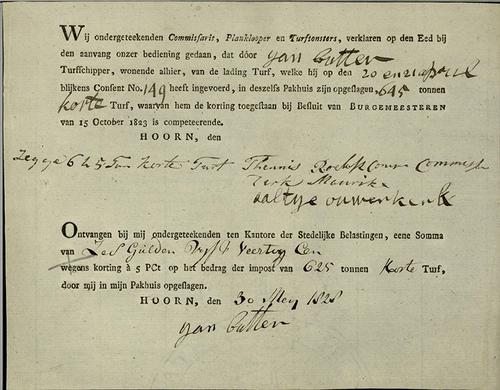 Wij ondergeteekenden Commisfaris, Planklooper en Turftonsters, verklaren op den Eed bij
den aanvang onzer bediening gedaan, dat dóór Jan Butter
Turffchipper, wonende alhier, van de lading Turf, welke hij op den 20 en 21 april
blijkens Confent No. 149 heeft ingevoerd, in deszelfs Pakhuis zijn opgeflagen, 645 tonnen
korte Turf, waarvan hem de korting toegeftaan bij Befluit van BURGEMEESTEREN
van 15 October 1823 is competeerende.
HOORN, den
Zegge 625 Ton korte Turf Commisf
Dirk Maurik
aaltje ouwerkerk
Ontvangen bij mij ondergeteekenden ten Kantore der Stedelijke Belastingen, eene Somma
van Zes Gulden Veertig Cen
wegens korting à 5 PCt op het bedrag der impost van 625 tonnen Korte Turf,
door mij in mijn Pakhuis opgeflagen.
HOORN, den 30 Mey 1828
Jan Butter